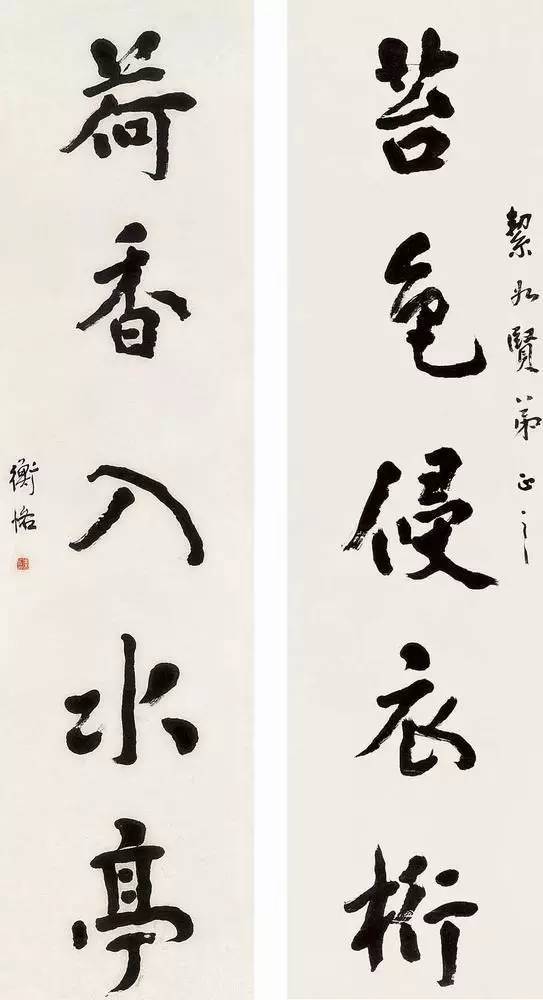 賢弟正之
苔色侵衣桁
荷香入水亭
衡恪